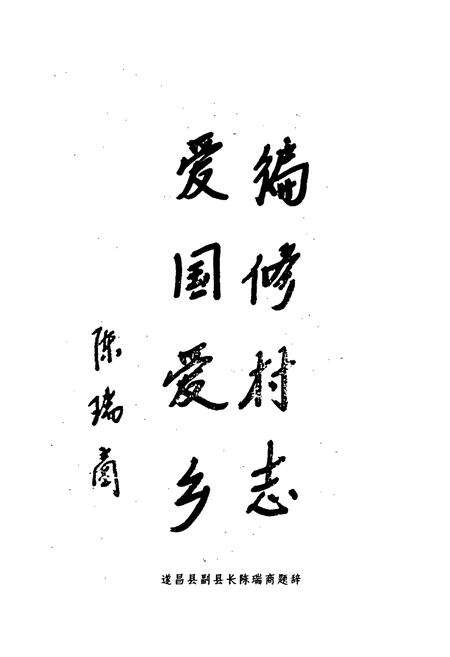 编修村志
爱国爱乡
陈瑞商
遂昌县副县长陈瑞商题辞